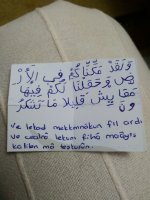 وَلَقَدْ مَكَّنَّاكُمْ فِي الْأَرْ
ضِ وَجَعَلْنَا لَكُمْ فِيهَا
مَعَايِشَ قَلِيلًا مَا تَشْكُرُ
ونَ
ve lekad mekkennakun fil ardı
ve cealna lekum fiha maayışe
kalilen ma teşkurun.